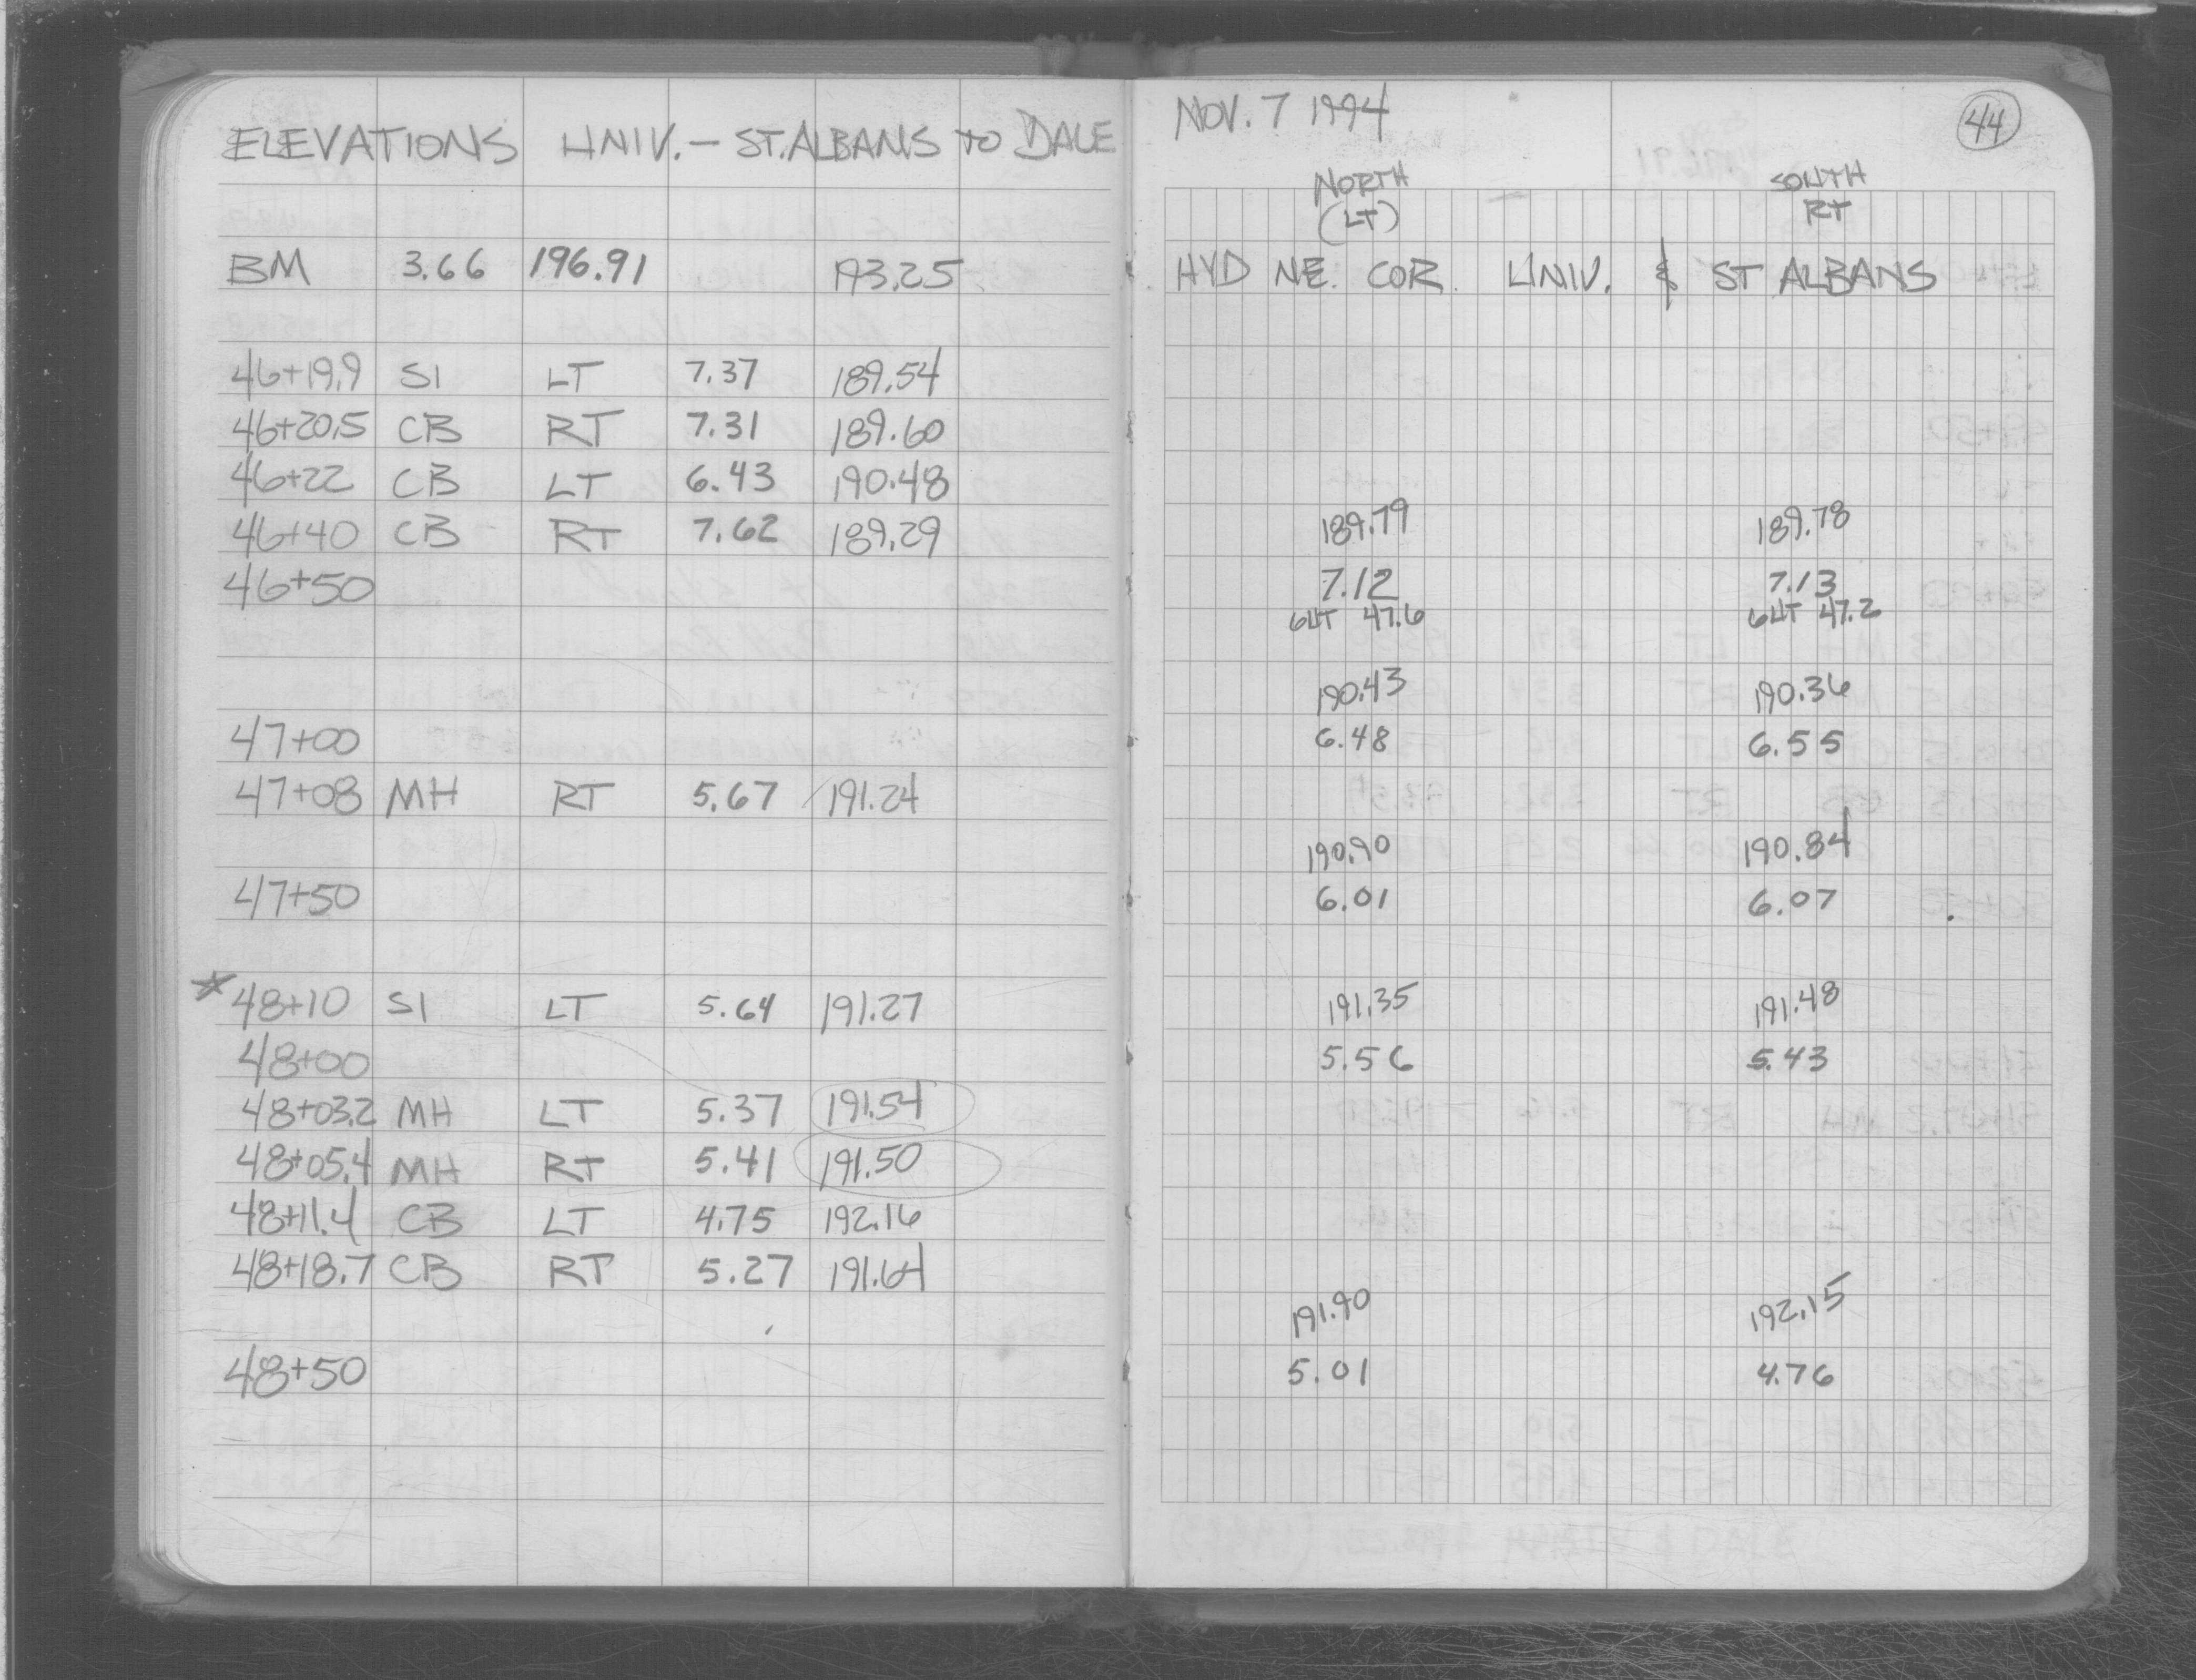 ELEVATIONS UNIV. - ST. ALBANS TO DALE
BM 3.66 196.91 193.25
46+19.9 SI LT 7.37 189.54
46+20.5 CB RT 7.31 189.60
46+22 CB LT 6.43 190.48
46+40 CB RT 7.62 189.29
46+50
47+00
47+08 MH RT 5.67 191.24
47+50
* 48+10 SI LT 5.64 191.27
48+00
48+03.2 MH LT 5.37 191.54
48+05.4 MH RT 5.41 191.50
48+11.4 CB LT 4.75 192.16
48+18.7 CB RT 5.27 191.64
48+50
NOV. 7 1994
44
NORTH SOUTH
(LT) RT
HYD NE. COR. UNIV. & ST ALBANS
189.79 189.78
7.12 7.13
GUT 47.6 GUT 47.2
190.43 190.36
6.48 6.55
190.90 190.84
6.01 6.07
191.35 191.48
5.56 5.43
191.90 192.15
5.01 4.76